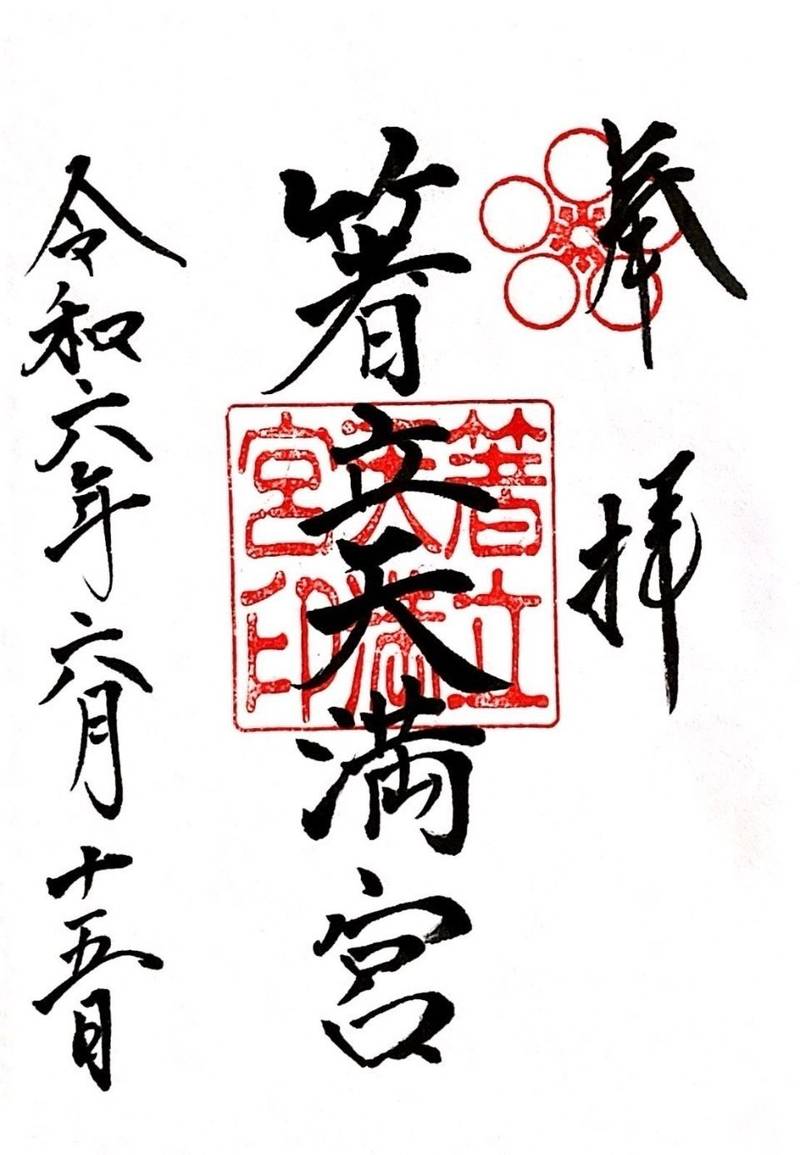 奉拝
箸立天満宮
箸立天満宮印
令和六年六月十五日